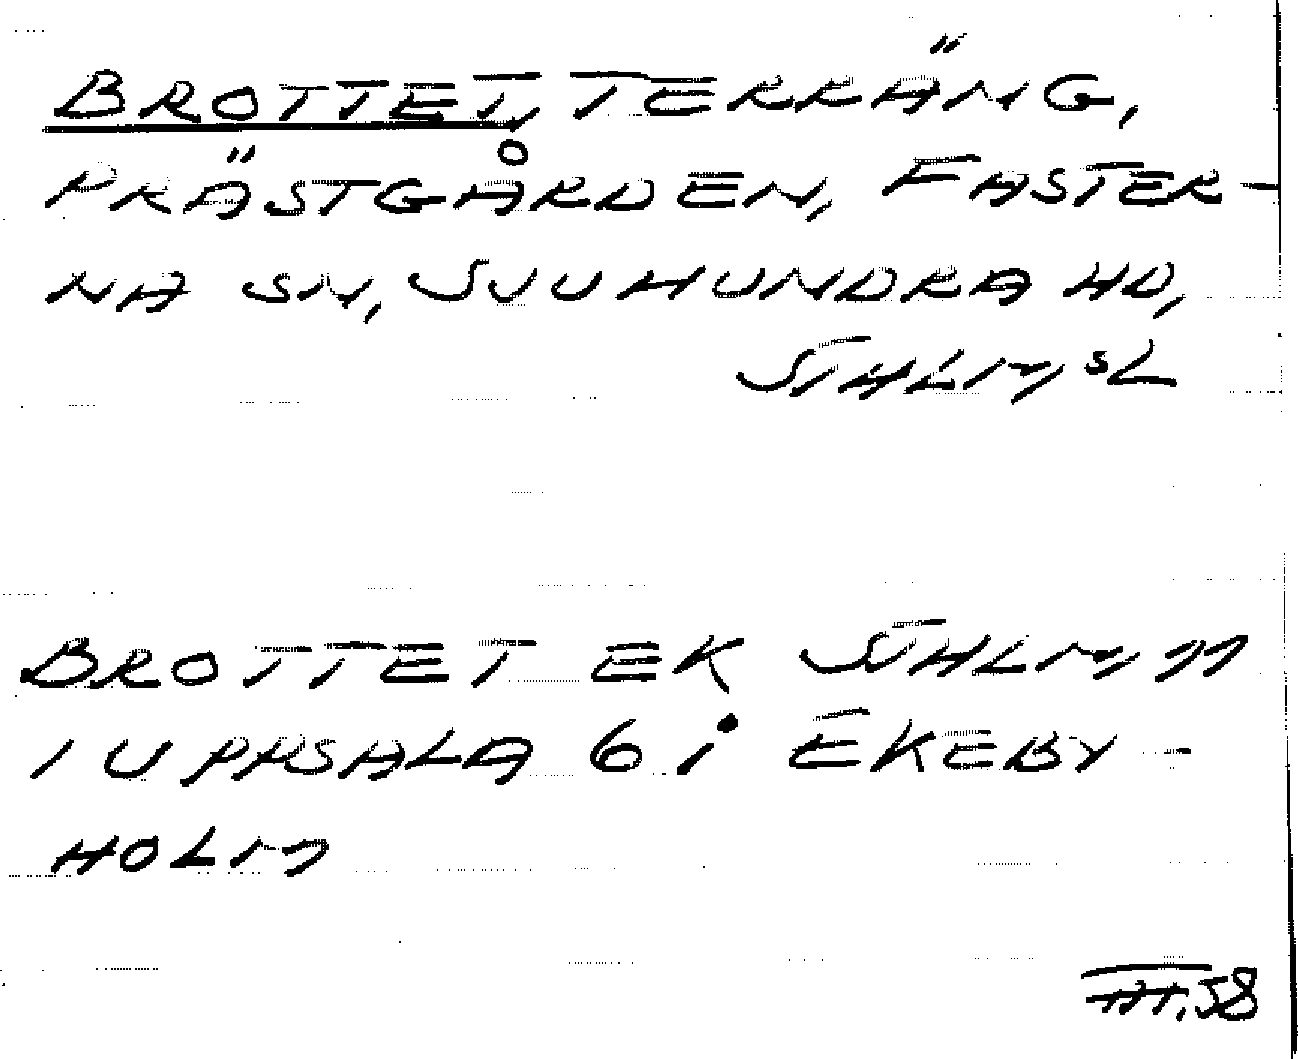 BROTTET, TERRÄNG,
PRÄSTGÅRDEN, FASTER-
NA SN, SJUHUNDRA HD,
STHLMS L
BROTTET EK STHLM
I UPPSALA 6 i EKEBY-
HOLM
58